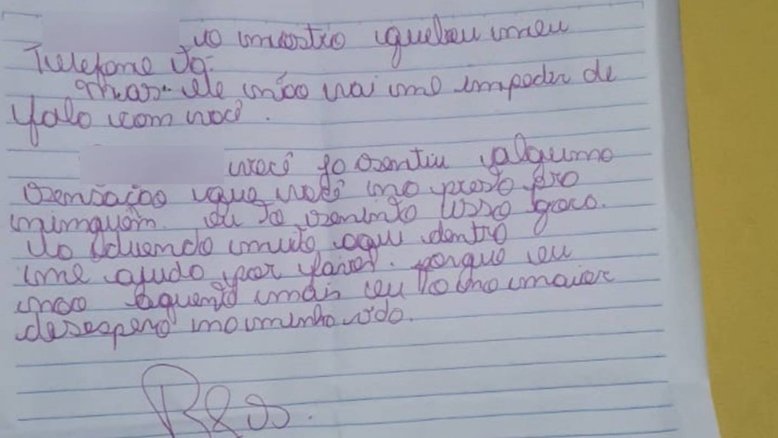 o mostro quebou meu
Telefone Vó.
mas ele não vai me impedir de
falo com você.
você ja sentiu alguma
sensação que você não presta pra
ninguém. eu to sentindo isso gora.
to duendo muito aqui dentro
me ajudo por favor. porque eu
não aguento mais eu to no maior
desespero na minha vida.